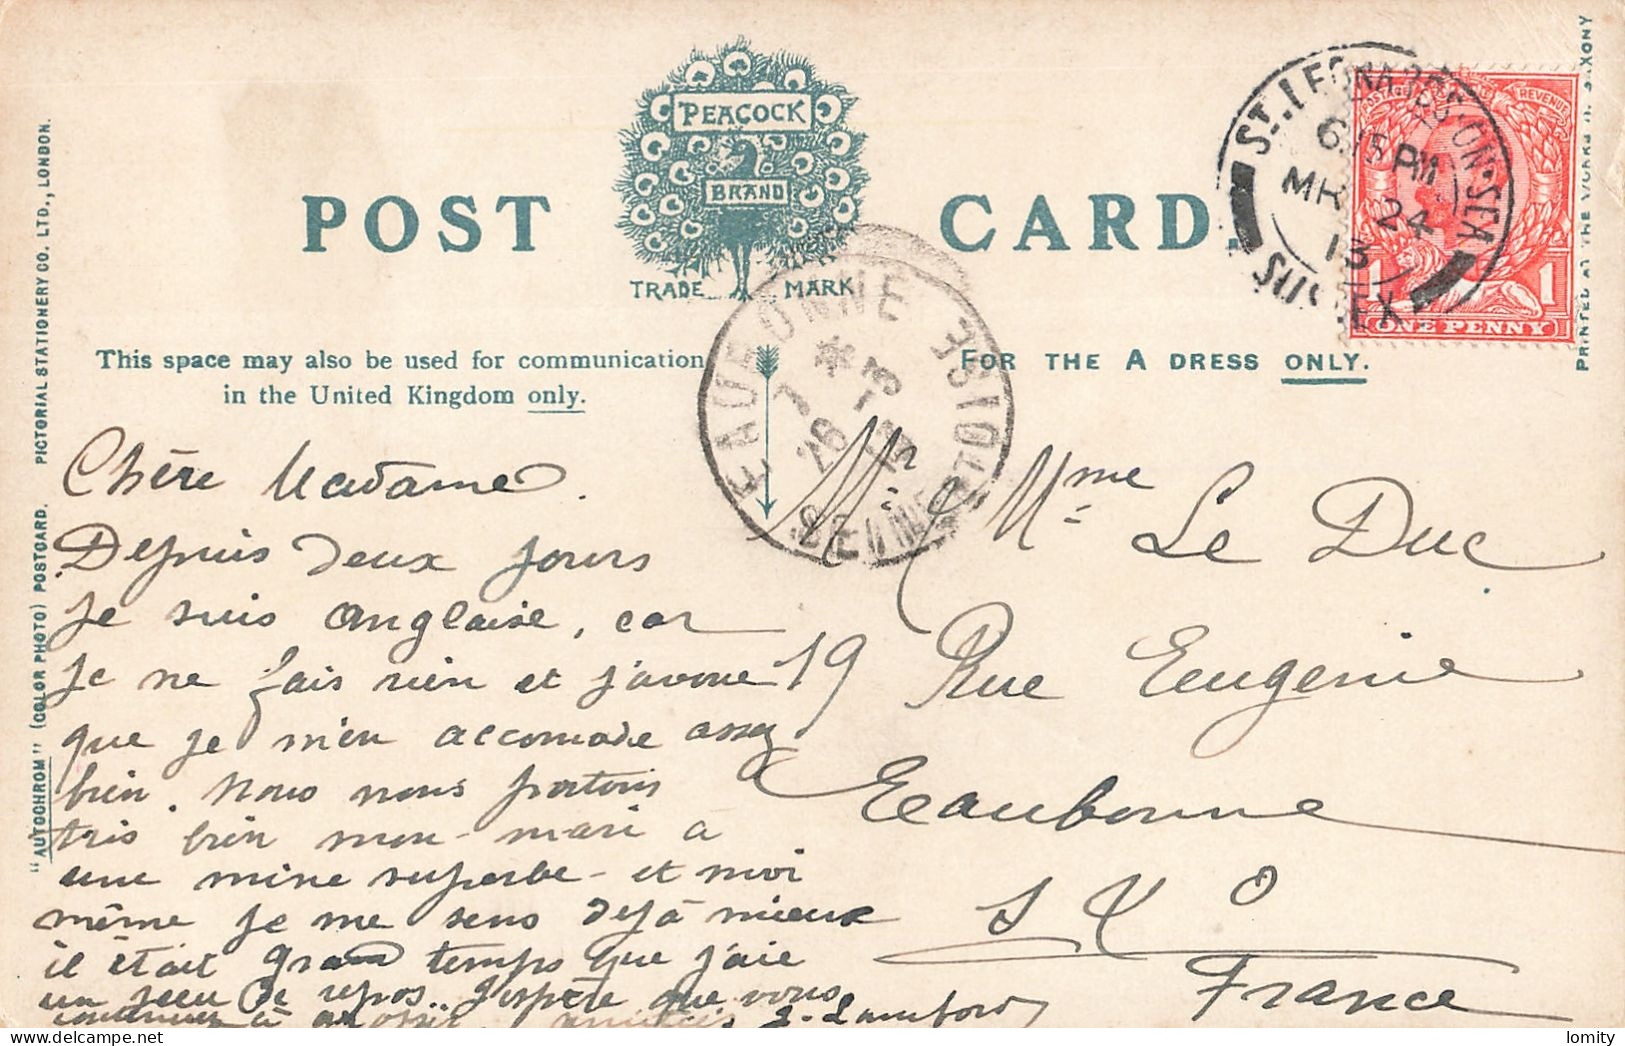 PEACOCK
BRAND
POST CARD.
TRADE MARK
This space may also be used for communication
in the United Kingdom only.
FOR THE A DRESS ONLY.
"AUTOCHROM" (COLOR PHOTO) POSTCARD. PICTORIAL STATIONERY CO. LTD., LONDON.
PRINTED AT THE WORKS IN SAXONY
ST. LEONARDS-ON-SEA
6.15 PM
MR 24
13
SUSSEX
POSTAGE REVENUE
1 1
ONE PENNY
EAUBONNE
7 * 35
26 - 3
13
SEINE ET OISE
Chère Madame.
Depuis deux jours
je suis anglaise, car
je ne fais rien et j'avoue
que je m'en accomode assez
bien. Nous nous portons
très bien mon mari a
une mine superbe et moi
même je me sens déjà mieux
il était grand temps que j'aie
un peu de repos.. J'espère que vous
continuez à amitiés
Mr Mme Le Duc
19 Rue Eugenie
Eaubonne
S & O
France
lomity